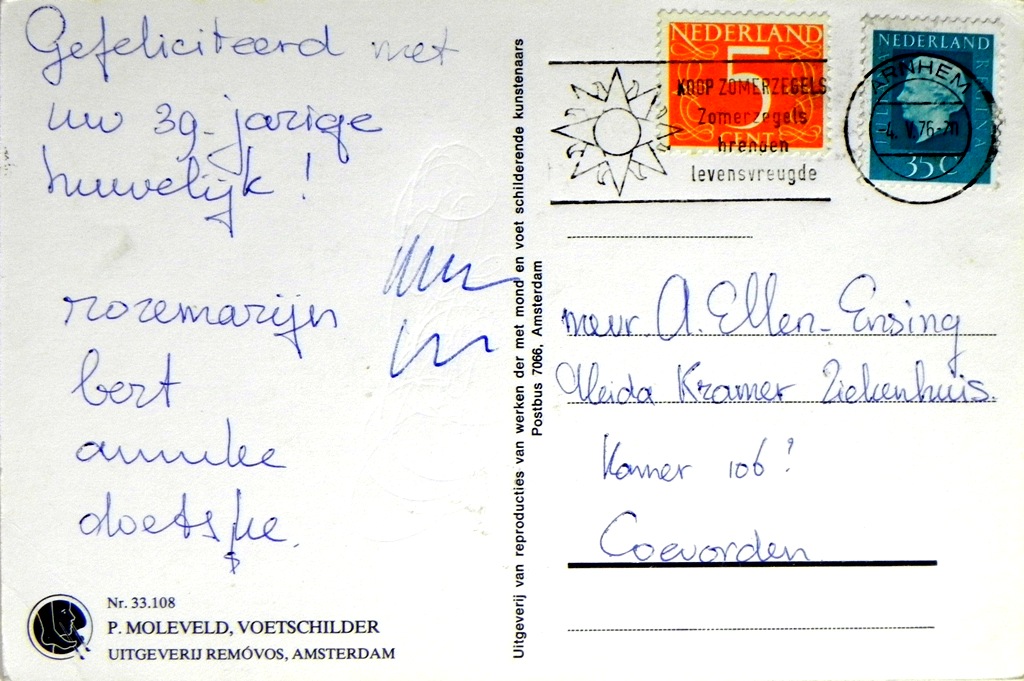 Gefeliciteerd met
uw 39-jarige
huwelijk!
rozemarijn
bert
anneke
doetske.
Nr. 33.108
P. MOLEVELD, VOETSCHILDER
UITGEVERIJ REMÓVOS, AMSTERDAM
Uitgeverij van reproducties van werken der met mond en voet schilderende kunstenaars
Postbus 7066, Amsterdam
NEDERLAND
5
CENT
KOOP ZOMERZEGELS
Zomerzegels
brengen
levensvreugde
NEDERLAND
35 C
ARNHEM
-4. V. 76
mevr. A. Ellen-Ensing
Aleida Kramer Ziekenhuis.
Kamer 106?
Coevorden